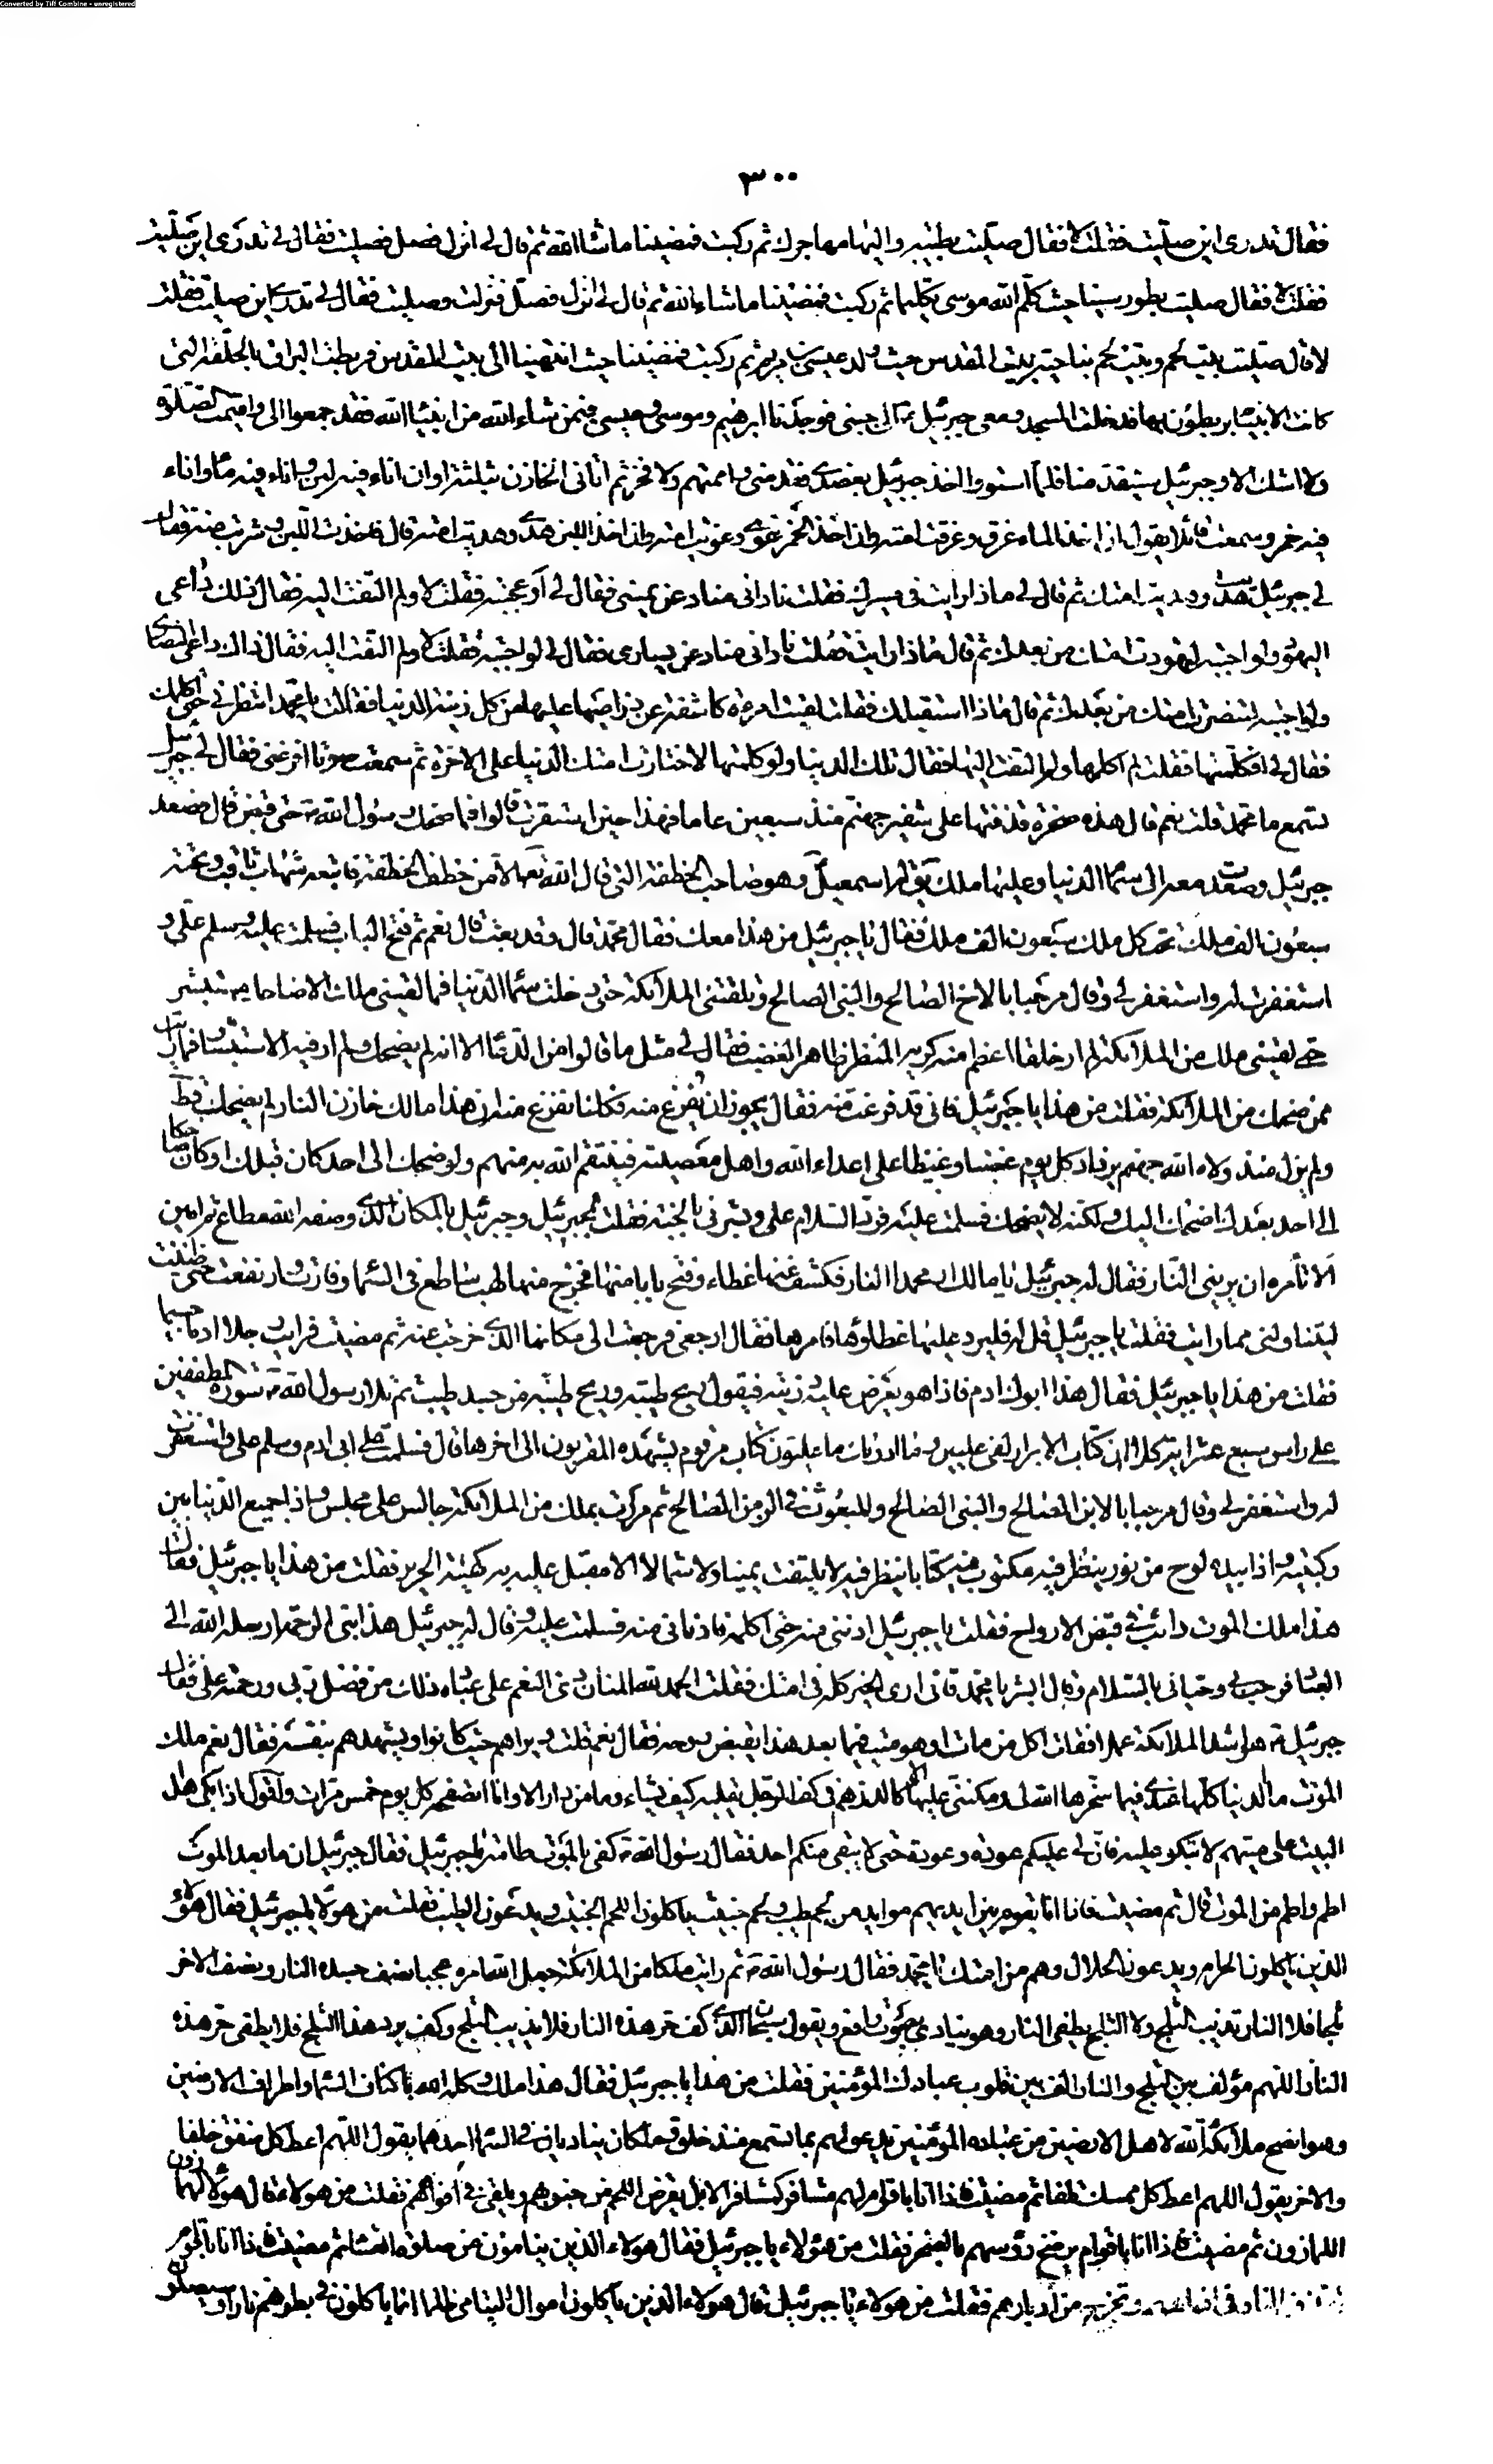 Converted by Tiff Combine - unregistered
٣٠٠
فقال تدرى اين صليت فقلت لا فقال صليت بطيبه واليها مهاجرك ثم ركبت فمضينا ما شاء الله ثم قال لى انزل فصل فصليت فقال لى تدرى اين صليت
فقلت لا فقال صليت بطور سينا حيث كلم الله موسى تكليما ثم ركبت فمضينا ما شاء الله ثم قال لى انزل فصل فنزلت وصليت فقال لى تدرى اين صليت فقلت
لا قال صليت ببيت لحم وبيت لحم بناحية بيت المقدس حيث ولد عيسى بن مريم ثم ركبت فمضينا حيث انتهينا الى بيت المقدس فربطت البراق بالحلقة التى
كانت الانبياء يربطون بها فدخلت المسجد ومعى جبرئيل الى جنبى فوجدنا ابرهيم وموسى وعيسى فيمن شاء الله من انبياء الله فقد جمعوا الى واقيمت الصلوة
ولا اشك الا وجبرئيل سيتقدمنا فلما استووا اخذ جبرئيل بعضدى فقدمنى واممتهم ولا فخر ثم اتانى الخازن بثلثة اوان اناء فيه لبن واناء فيه ماء واناء
فيه خمر وسمعت قائلا يقول ان اخذ الماء غرق وغرقت امته وان اخذ الخمر غوى وغويت امته وان اخذ اللبن هدى وهديت امته قال فاخذت اللبن وشربت منه فقال
لى جبرئيل هديت وهديت امتك ثم قال لى ماذا رايت فى مسيرك فقلت نادانى مناد عن يمينى فقال لى او اجبته فقلت لا ولم التفت اليه فقال ذلك داعى
اليهود ولو اجبته لتهودت امتك من بعدك ثم قال ماذا رايت فقلت نادانى مناد عن يسارى فقال لى او اجبته فقلت لا ولم التفت اليه فقال ذاك داعى النصارى
ولو اجبته لتنصرت امتك من بعدك ثم قال ماذا استقبلك فقلت لقيت امرءة كاشفة عن ذراعيها عليها من كل زينة الدنيا فقالت يا محمد انتظرنى حتى اكلمك
فقال لى افكلمتها فقلت لم اكلمها ولم التفت اليها فقال تلك الدنيا ولو كلمتها لاختارت امتك الدنيا على الاخرة ثم سمعت صوتا افزعنى فقال لى جبرئيل
تسمع يا محمد قلت نعم قال هذه صخرة قذفتها على شفير جهنم منذ سبعين عاما فهذا حين استقرت قالوا فما ضحك رسول الله ص حتى قبض قال فصعد
جبرئيل وصعدت معه الى سماء الدنيا وعليها ملك يقال له اسمعيل وهو صاحب الخطفة التى قال الله تعالى الا من خطف الخطفة فاتبعه شهاب ثاقب وتحته
سبعون الف ملك تحت كل ملك سبعون الف ملك فقال يا جبرئيل من هذا معك فقال محمد قال وقد بعث قال نعم ثم فتح الباب فسلمت عليه وسلم على و
استغفرت له واستغفر لى وقال مرحبا بالاخ الصالح والنبى الصالح وتلقتنى الملائكة حتى دخلت سماء الدنيا فما لقينى ملك الا ضاحكا مستبشرا
حتى لقينى ملك من الملائكة لم ار خلقا اعظم منه كريه المنظر ظاهر الغضب فقال لى مثل ما قالوا من الدعاء الا انه لم يضحك ولم ار فيه الاستبشار ما رايت
ممن ضحك من الملائكة فقلت من هذا يا جبرئيل فانى قد فزعت منه فقال يجوز ان تفزع منه فكلنا نفزع منه ان هذا مالك خازن النار لم يضحك قط
ولم يزل منذ ولاه الله جهنم يزداد كل يوم غضبا وغيظا على اعداء الله واهل معصيته فينتقم الله به منهم ولو ضحك الى احد كان قبلك او كان ضاحكا
الى احد بعدك لضحك اليك ولكنه لا يضحك فسلمت عليه فرد السلام على وبشرنى بالجنة فقلت لجبرئيل وجبرئيل بالمكان الذى وصفه الله مطاع ثم امين
الا تأمره ان يرينى النار فقال له جبرئيل يا مالك ار محمدا النار فكشف عنها غطاء وفتح بابا منها فخرج منها لهب ساطع فى السماء وفارت وارتفعت حتى ظننت
ليتناولنى مما رايت فقلت يا جبرئيل قل له فليرد عليها غطاؤها فامرها فقال ارجعى فرجعت الى مكانها الذى خرجت منه ثم مضيت فرايت رجلا ادما جسيما
فقلت من هذا يا جبرئيل فقال هذا ابوك ادم فاذا هو يعرض عليه ذريته فيقول ريح طيبة وريح طيبة من جسد طيب ثم تلا رسول الله ص سورة المطففين
على راس سبع عشر اية كلا ان كتاب الابرار لفى عليين وما ادريك ما عليون كتاب مرقوم يشهده المقربون الى اخرها قال فسلمت على ابى ادم وسلم على واستغفرت
له واستغفر لى وقال مرحبا بالابن الصالح والنبى الصالح والمبعوث فى الزمن الصالح ثم مررت بملك من الملائكة جالس على مجلس واذا جميع الدنيا بين
ركبتيه واذا بيده لوح من نور ينظر فيه مكتوب فيه كتابا ينظر فيه لا يلتفت يمينا ولا شمالا الا مقبل عليه به كهيئة الحزين فقلت من هذا يا جبرئيل فقال
هذا ملك الموت دائب فى قبض الارواح فقلت يا جبرئيل ادننى منه حتى اكلمه فادنانى منه فسلمت عليه وقال له جبرئيل هذا نبى الرحمة ارسله الله الى
العباد فرحب لى وحيانى بالسلام وقال ابشر يا محمد فانى ارى الخير كله فى امتك فقلت الحمد لله المنان ذى النعم على عباده ذلك من فضل ربى ورحمته على فقال
جبرئيل هو اشد الملائكة عملا فقلت اكل من مات او هو ميت فيما بعد هذا يقبض روحه فقال نعم قلت ويراهم حيث كانوا ويشهدهم بنفسه فقال نعم فقال ملك
الموت ما الدنيا كلها عندى فيما سخرها الله لى ومكننى عليها الا كالدرهم فى كف الرجل يقلبه كيف يشاء وما من دار الا وانا اتصفحه كل يوم خمس مرات واقول اذا بكى اهل
البيت على ميتهم لا تبكوا عليه فان لى عليكم عودة وعودة حتى لا يبقى منكم احد فقال رسول الله ص كفى بالموت طامة يا جبرئيل فقال جبرئيل ان ما بعد الموت
اطم واطم من الموت قال ثم مضيت فاذا انا بقوم بين ايديهم موايد من لحم طيب ولحم خبيث ياكلون اللحم الخبيث ويدعون الطيب فقلت من هؤلاء يا جبرئيل فقال هؤلاء
الذين ياكلون الحرام ويدعون الحلال وهم من امتك يا محمد فقال رسول الله ص ثم رايت ملكا من الملائكة جعل الله امره عجبا نصف جسده النار ونصف الاخر
ثلجا فلا النار تذيب الثلج ولا الثلج يطفى النار وهو ينادى بصوت رافع ويقول سبحان الذى كف حر هذه النار فلا يذيب الثلج وكف برد هذا الثلج فلا يطفى حر هذه
النار اللهم مؤلف بين الثلج والنار الف بين قلوب عبادك المؤمنين فقلت من هذا يا جبرئيل فقال هذا ملك وكله الله باكناف السماء واطراف الارضين
وهو انصح ملائكة الله لاهل الارضين من عباده المؤمنين يدعو لهم بما تسمع منذ خلق وملكان يناديان فى السماء احدهما يقول اللهم اعط كل منفق خلفا
والاخر يقول اللهم اعط كل ممسك تلفا ثم مضيت فاذا انا باقوام لهم مشافر كمشافر الابل يقرض اللحم من جنوبهم ويلقى فى افواههم فقلت من هؤلاء فقال هؤلاء الهمازون
اللمازون ثم مضيت فاذا انا باقوام يرضخ رؤسهم بالصخر فقلت من هؤلاء يا جبرئيل فقال هؤلاء الذين ينامون عن صلوة العشاء ثم مضيت فاذا انا باقوام
تقذف النار فى افواههم وتخرج من ادبارهم فقلت من هؤلاء يا جبرئيل قال هؤلاء الذين ياكلون اموال اليتامى ظلما انما ياكلون فى بطونهم نارا وسيصلون